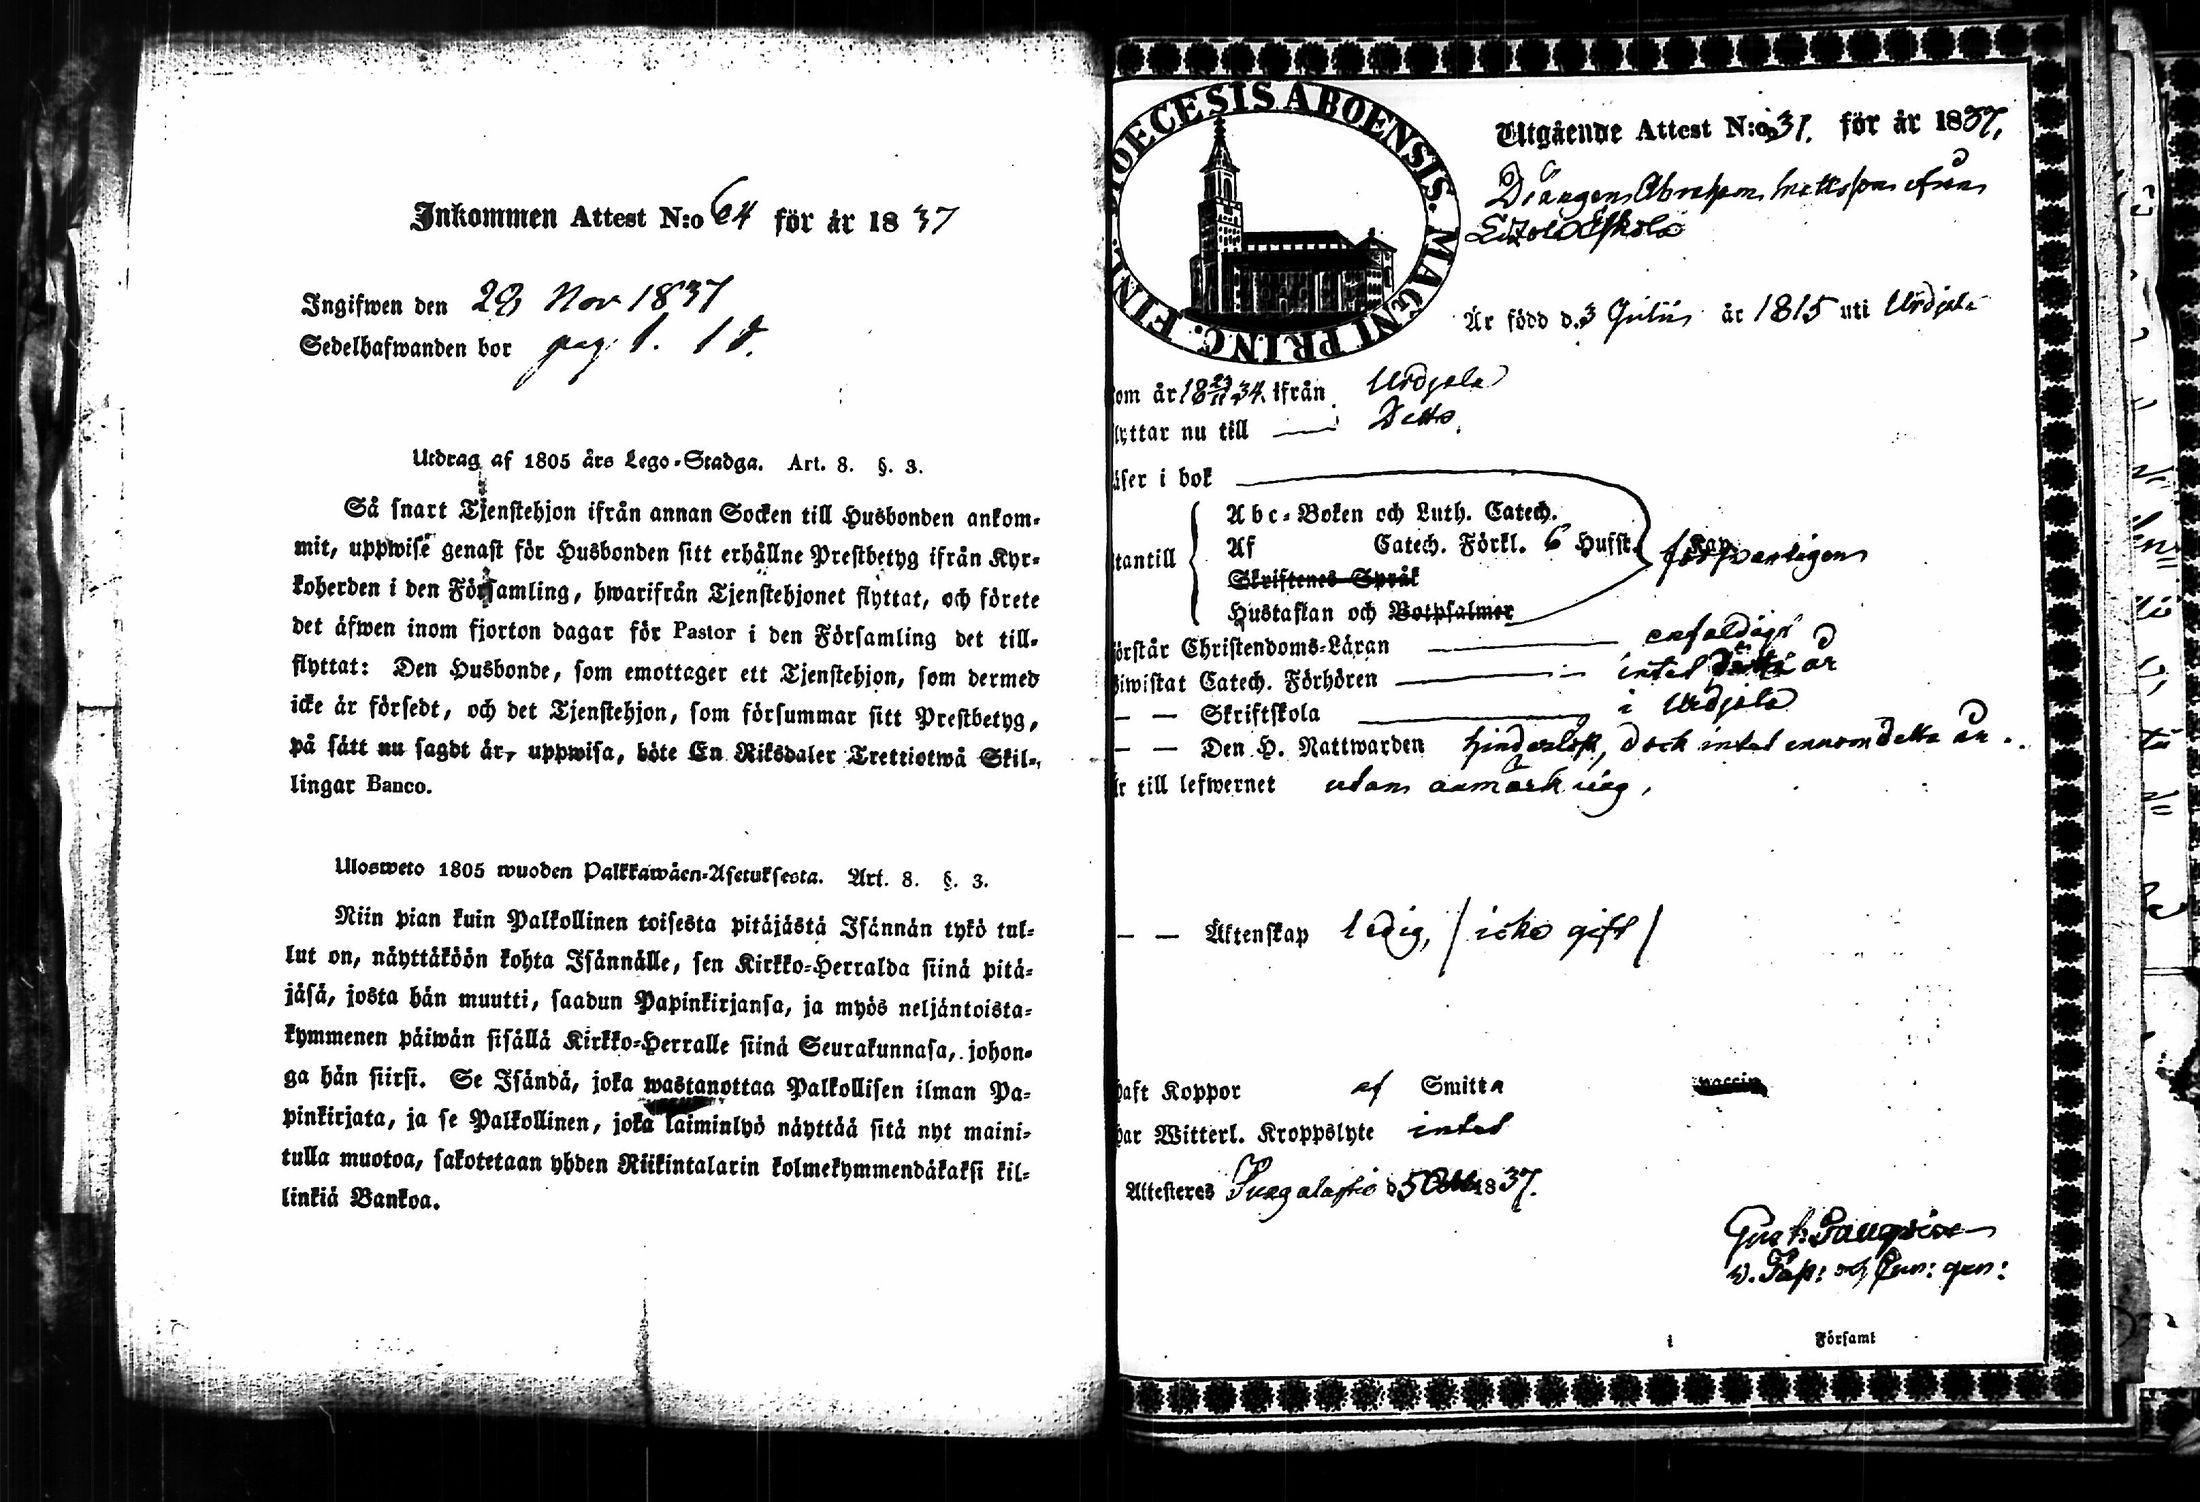 Inkommen Attest N:o 64 för år 1837
Ingifwen den 29 Nov 1837
Sedelhafwanden bor pag 1. 18.
Utdrag af 1805 års Lego-Stadga. Art. 8. §. 3.
Så snart Tjenstehjon ifrån annan Socken till Husbonden ankom-
mit, uppwise genast för Husbonden sitt erhållne Prestbetyg ifrån Kyr-
koherden i den Församling, hwarifrån Tjenstehjonet flyttat, och förete
det äfwen inom fjorton dagar för Pastor i den Församling det till-
flyttat: Den Husbonde, som emottager ett Tjenstehjon, som dermed
icke är försedt, och det Tjenstehjon, som försummar sitt Prestbetyg,
på sätt nu sagdt är, uppwisa, böte En Riksdaler Trettiotwå Skil-
lingar Banco.
Ulosweto 1805 wuoden Palkkawäen-Asetuksesta. Art. 8. §. 3.
Niin pian kuin Palkollinen toisesta pitäjästä Isännän tykö tul-
lut on, näyttäköön kohta Isännälle, sen Kirkko-Herralda siinä pitä-
jäsä, josta hän muutti, saadun Papinkirjansa, ja myös neljäntoista-
kymmenen päiwän sisällä Kirkko-Herralle siinä Seurakunnasa, johon-
ga hän siirsi. Se Isändä, joka wastanottaa Palkollisen ilman Pa-
pinkirjata, ja se Palkollinen, joka laiminlyö näyttää sitä nyt maini-
tulla muotoa, sakotetaan yhden Riikintalarin kolmekymmendäkaksi kil-
linkiä Bankoa.
DIOECESIS ABOENSIS. MAGNI PRINC. FINL.
Utgående Attest N:o 31. för år 1837.
Drängen Abraham Mattsson från
Eskola
Är född d. 3 Julii år 1815 uti Urdjala
kom år 18 23/11 34. ifrån Urdjala
flyttar nu till Detto.
läser i bok
Abc-Boken och Luth. Catech.
utantill Af Catech. Förkl. 6 Hufst. Kap. försvarligen
Skriftenes Språk
Hustaflan och Botpsalmer
förstår Christendoms-Läran enfaldigt
biwistat Catech. Förhören intet detta år
— — Skriftskola i Urdjala
— — Den H. Nattwarden hinderlöst, dock intet ennom detta år.
är till lefwernet utan anmärkning,
— — Äktenskap ledig, / icke gift /
haft Koppor af Smitta vaccin
har Witterl. Kroppslyte intet
Attesteres d. 5 Oct. 1837.
Gust:
v. Cap: och
i Församl